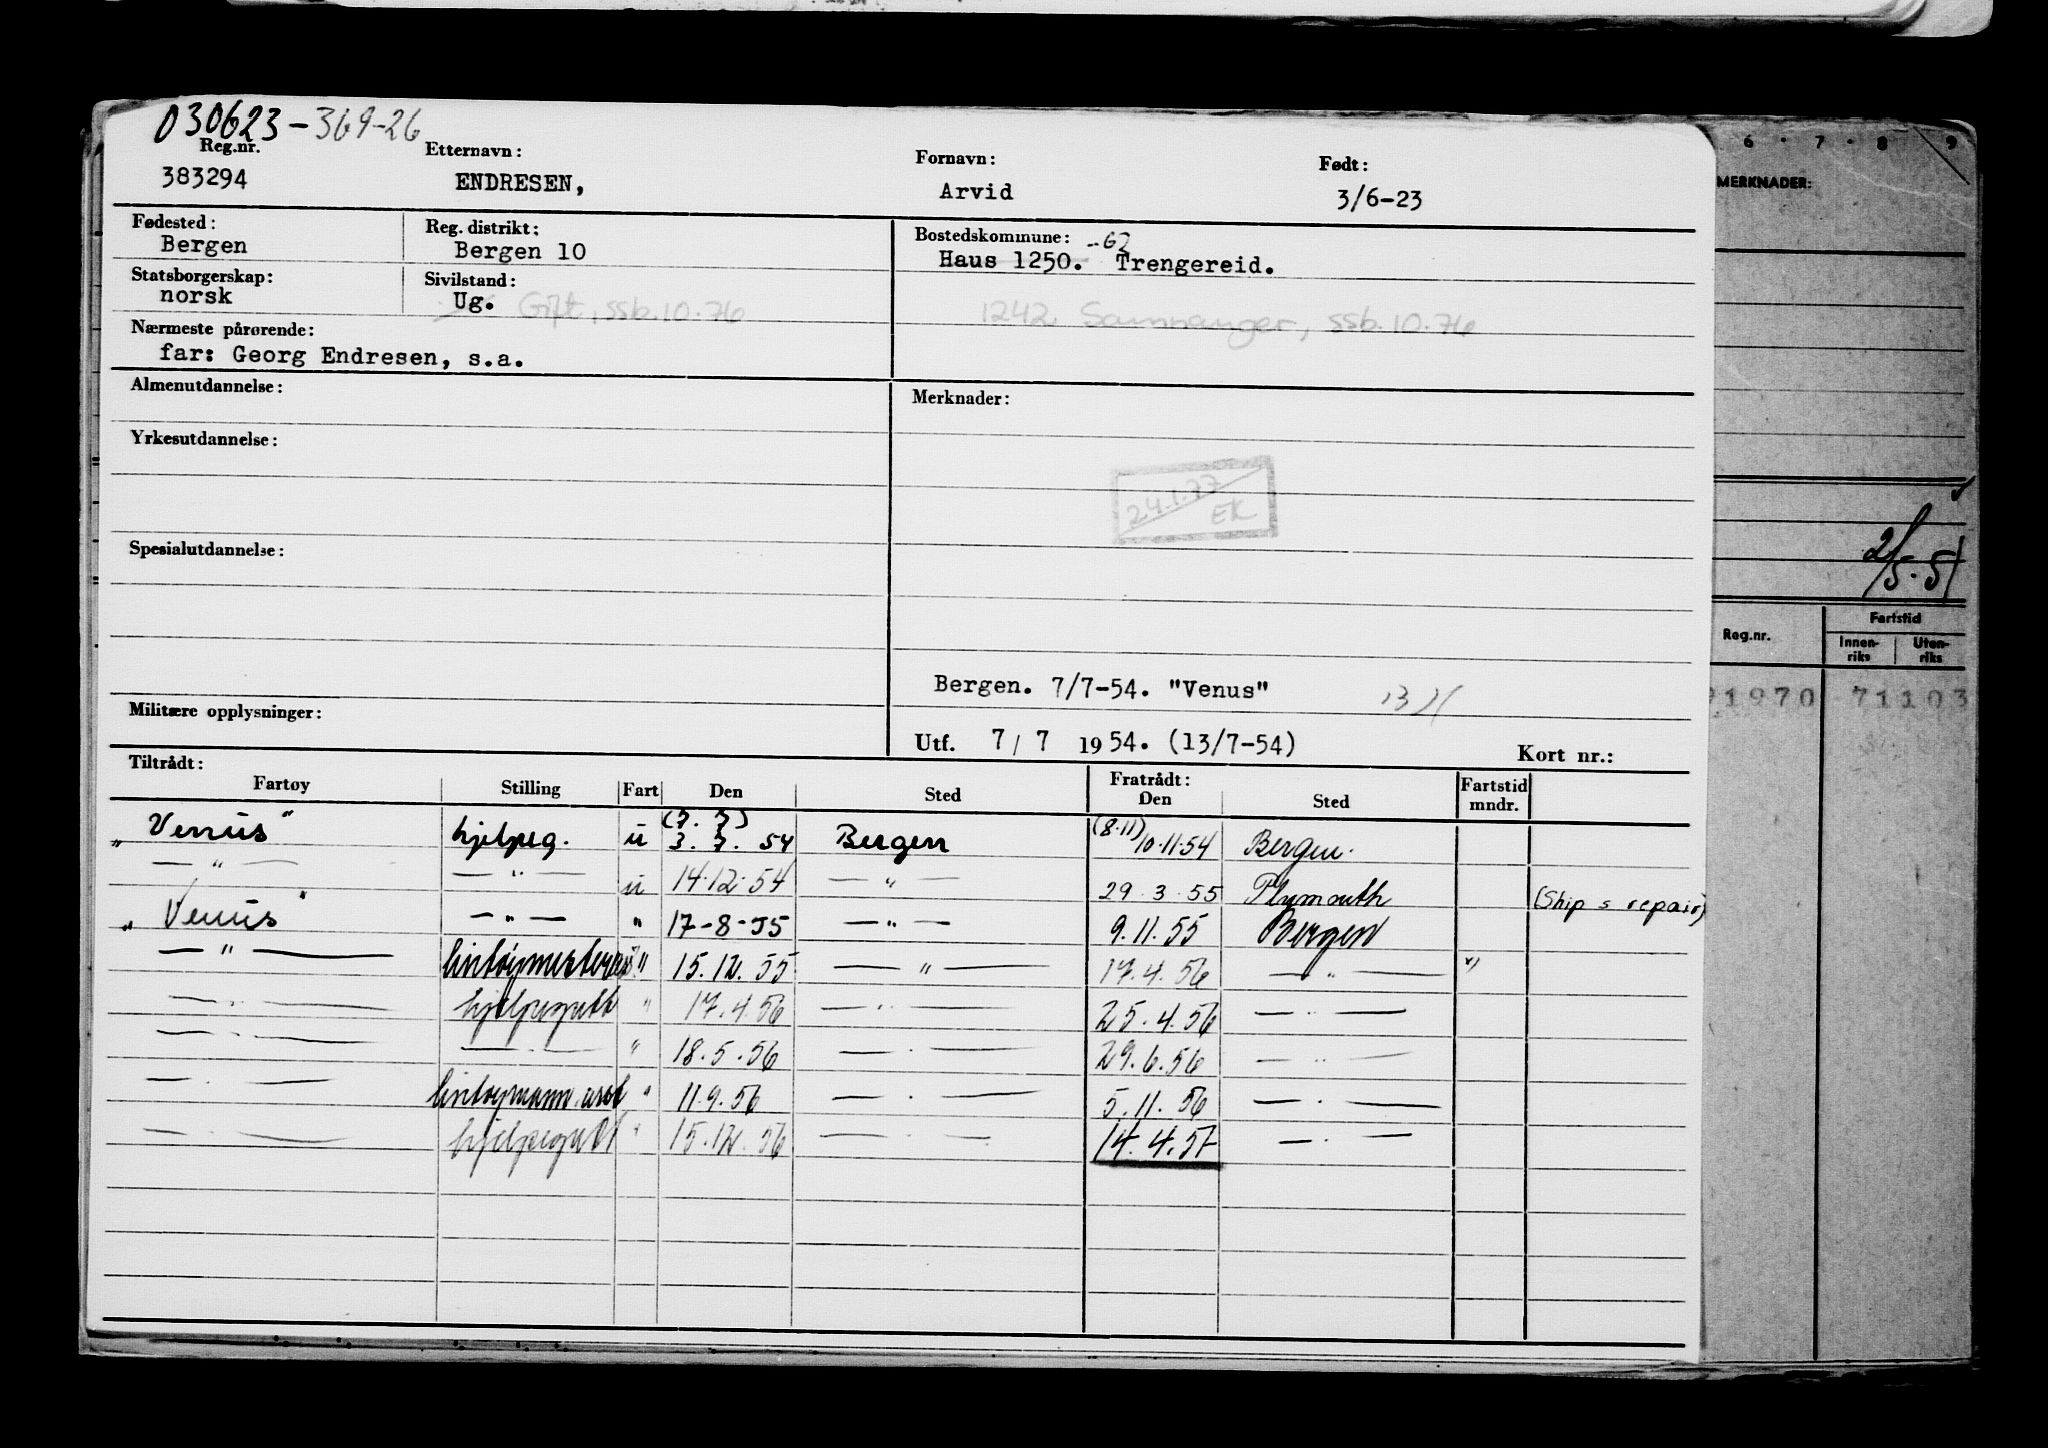 030623-369-26
Reg.nr. Etternavn: Fornavn: Født:
383294 ENDRESEN, Arvid 3/6-23
Fødested: Reg. distrikt: Bostedskommune: -62
Bergen Bergen 10 Haus 1250. Trengereid.
Statsborgerskap: Sivilstand:
norsk Ug. Gift, ssb.10.76 1242 Samnanger, ssb.10.76
Nærmeste pårørende:
far: Georg Endresen, s.a.
Almenutdannelse: Merknader:
Yrkesutdannelse:
24.1.77
EK
Spesialutdannelse:
Bergen. 7/7-54. "Venus"
Militære opplysninger:
Utf. 7/7 1954. (13/7-54) Kort nr.:
Tiltrådt: Fratrådt:
Fartøy Stilling Fart Den Sted Den Sted Fartstid mndr.
(7.7) (8.11)
"Venus" hjelpeg. u 3.7.54 Bergen 10.11.54 Bergen.
— " — — " — u 14.12.54 — " — 29.3.55 Plymouth (Ship s repair)
"Venus" — " — " 17-8-55 — " — 9.11.55 Bergen
— " — " 15.12.55 — " — 17.4.56 — " — "
— " — hjelpegutt " 17.4.56 — " — 25.4.56 — " —
— " — — " — " 18.5.56 — " — 29.6.56 — " —
— " — lintøymann.asst " 11.9.56 — " — 5.11.56 — " —
— " — hjelpegutt " 15.12.56 — " — 14.4.57 — " —
6 · 7 · 8 9
MERKNADER:
2/5.51
Reg.nr. Fartstid
Innen-riks Uten-riks
1970 71103